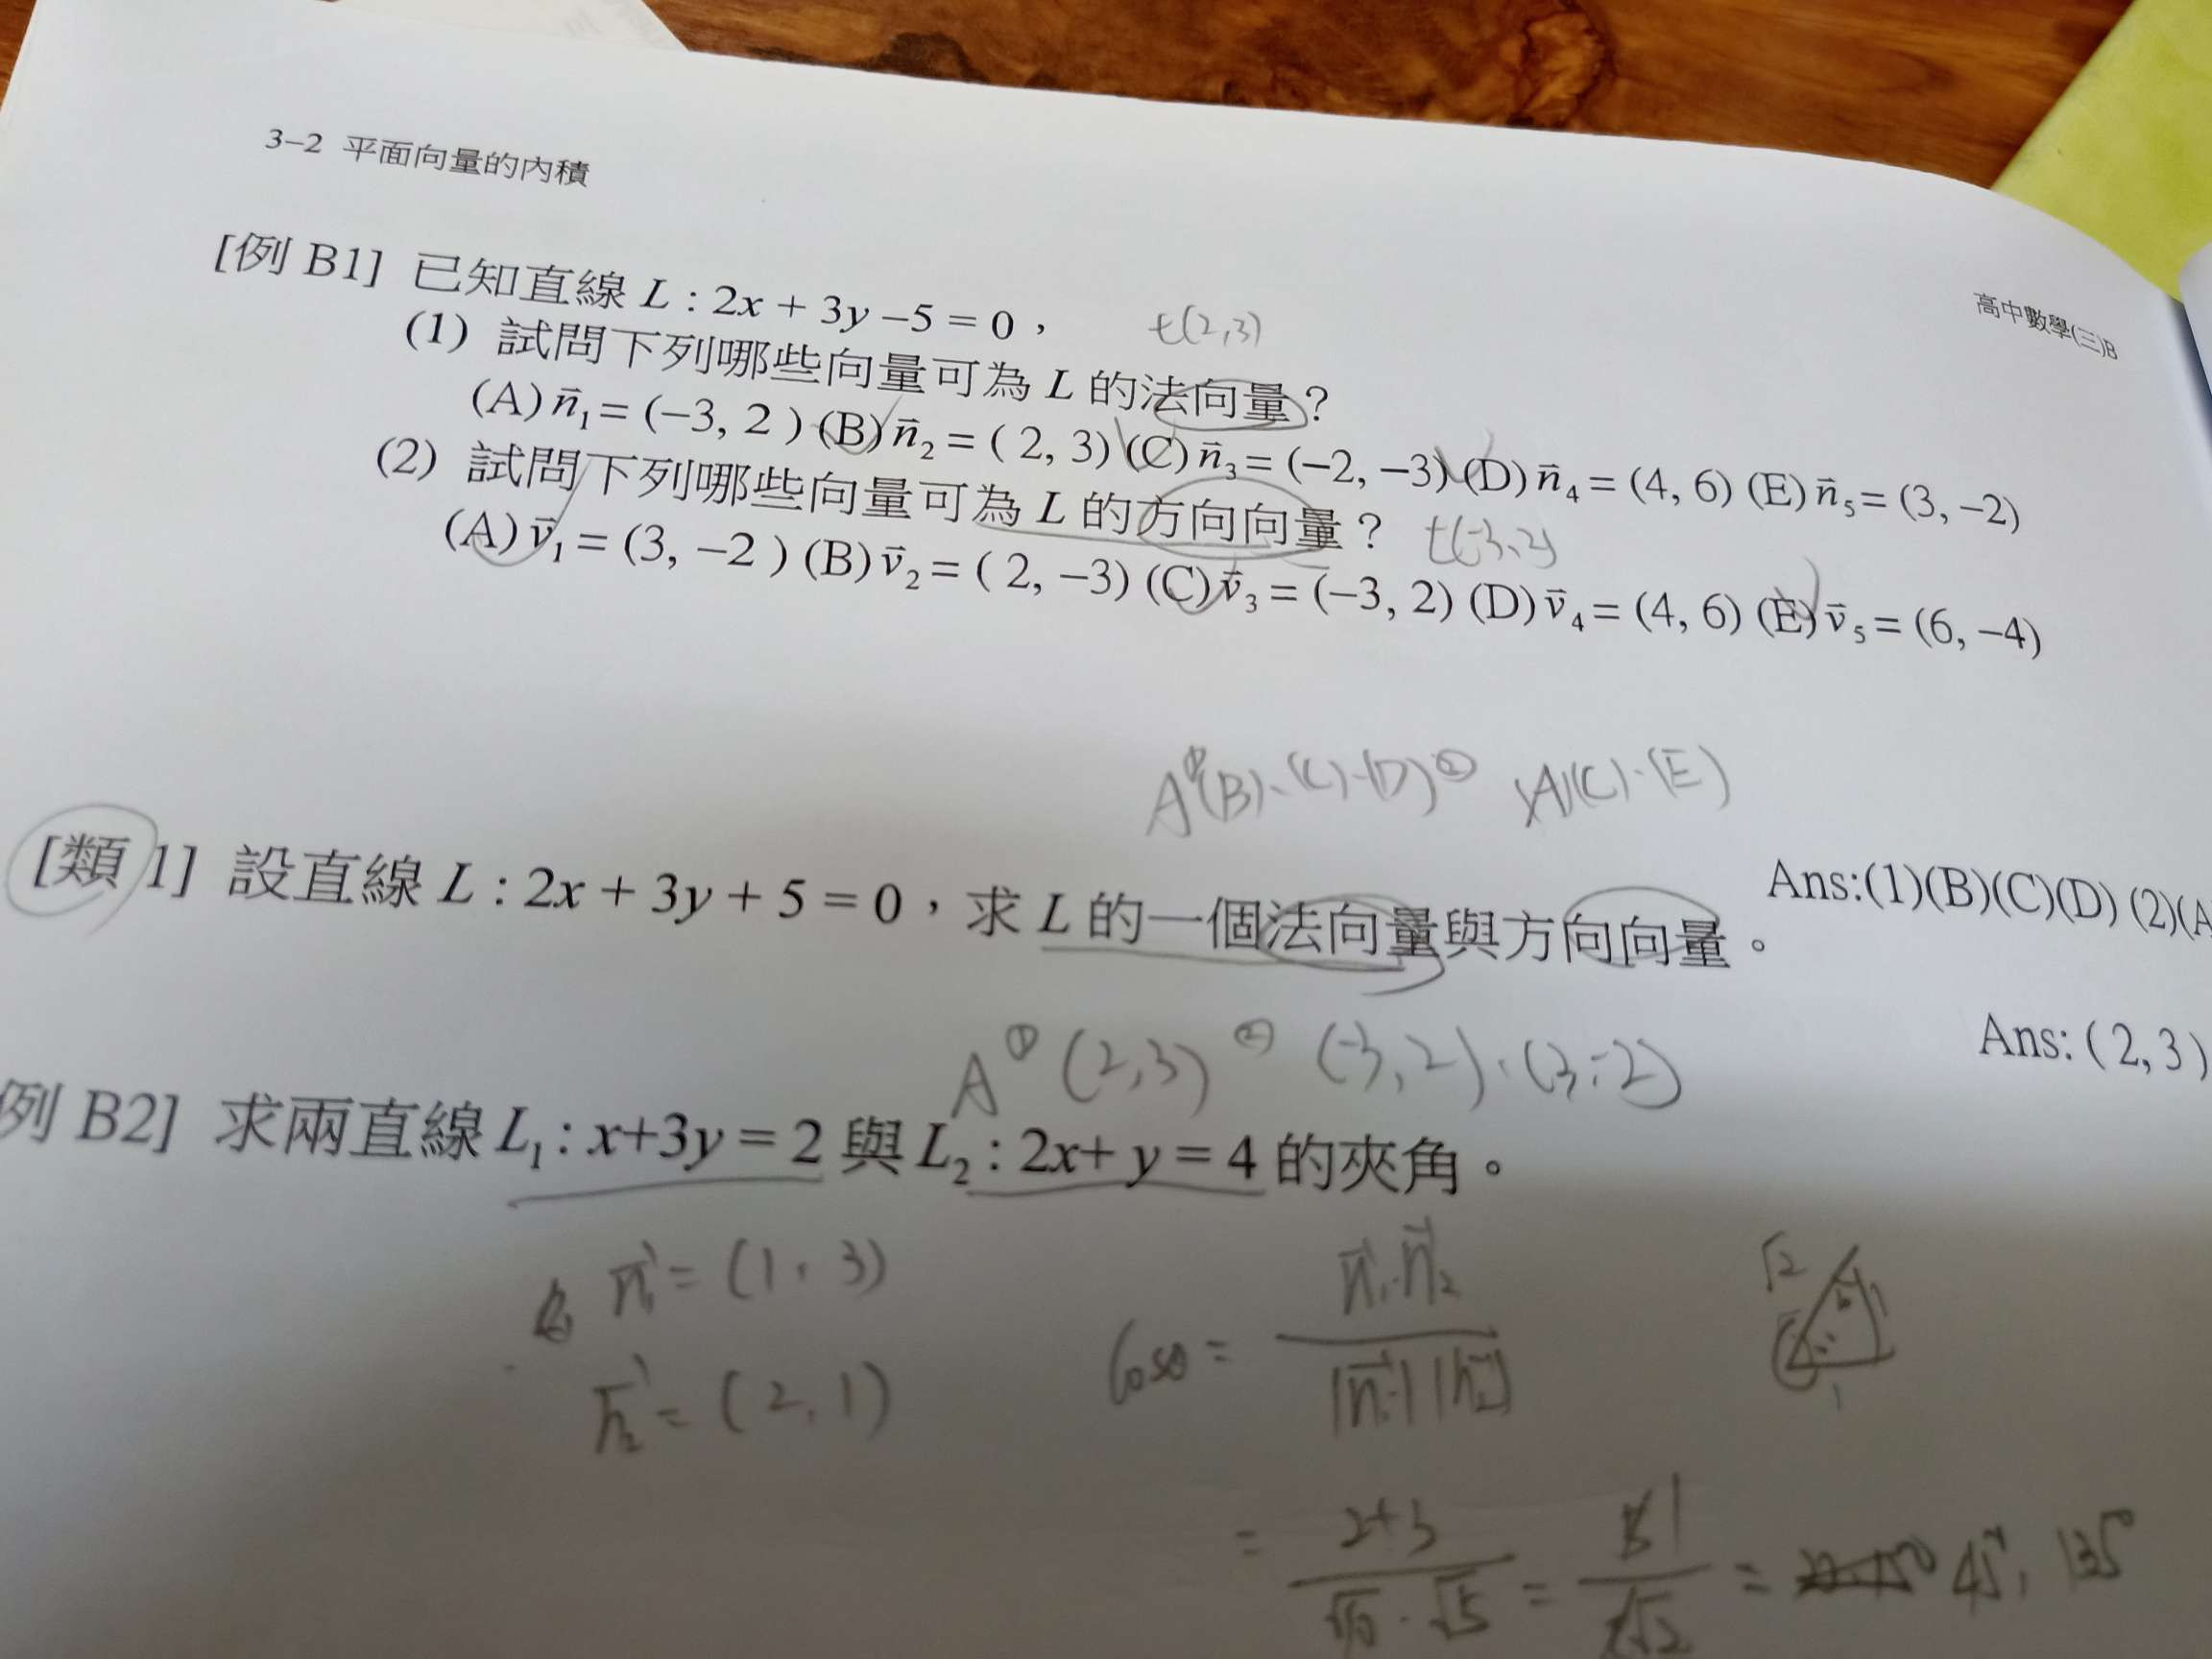 3–2 平面向量的內積
高中數學(三)B
[例 B1] 已知直線 L : 2x + 3y –5 = 0，
t(2,3)
(1) 試問下列哪些向量可為 L 的法向量？
(A) n⃗₁ = (–3, 2 ) (B) n⃗₂ = ( 2, 3) (C) n⃗₃ = (–2, –3) (D) n⃗₄ = (4, 6) (E) n⃗₅ = (3, –2)
(2) 試問下列哪些向量可為 L 的方向向量？ t(-3,2)
(A) v⃗₁ = (3, –2 ) (B) v⃗₂ = ( 2, –3) (C) v⃗₃ = (–3, 2) (D) v⃗₄ = (4, 6) (E) v⃗₅ = (6, –4)
A ① (B)、(C)、(D) ② (A)(C)、(E)
Ans:(1)(B)(C)(D) (2)(A
[類 1] 設直線 L : 2x + 3y + 5 = 0，求 L 的一個法向量與方向向量。
Ans: ( 2, 3 )
A ① (2,3) ② (-3,2)、(3,-2)
例 B2] 求兩直線 L₁ : x+3y = 2 與 L₂ : 2x+ y = 4 的夾角。
n⃗₁ = (1, 3)
n⃗₂ = (2, 1)
cosθ = n⃗₁·n⃗₂ / |n⃗₁| |n⃗₂|
√2
1
1
= 2+3 / √10·√5 = 1 / √2 = 45°, 135°